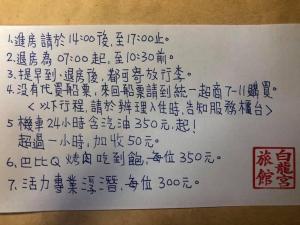 1.進房請於14:00後,至17:00止。
2.退房為07:00起,至10:30前。
3.提早到、退房後,都可寄放行李。
4.沒有代賣船票,來回船票請到統一超商7-11購買。
<以下行程,請於辦理入住時,告知服務櫃台>
5.機車24小時含汽油350元.起!
超過一小時,加收50元。
6.巴比Q烤肉吃到飽,每位350元。
7.活力專業浮潛,每位300元。
白龍宮
旅館